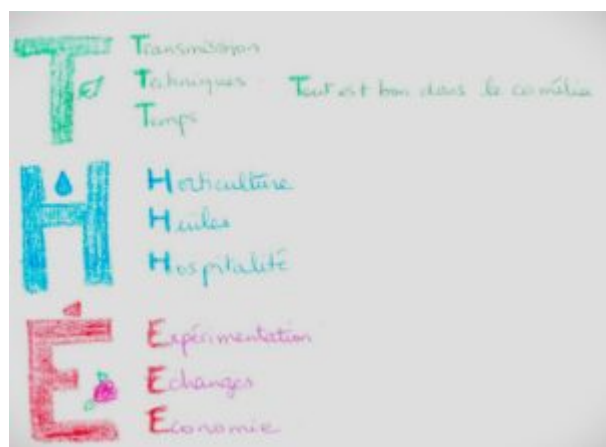 T
Transmission
Techniques Tout est bon dans le camélia
Temps
H
Horticulture
Huiles
Hospitalité
É
Expérimentation
Echanges
Economie